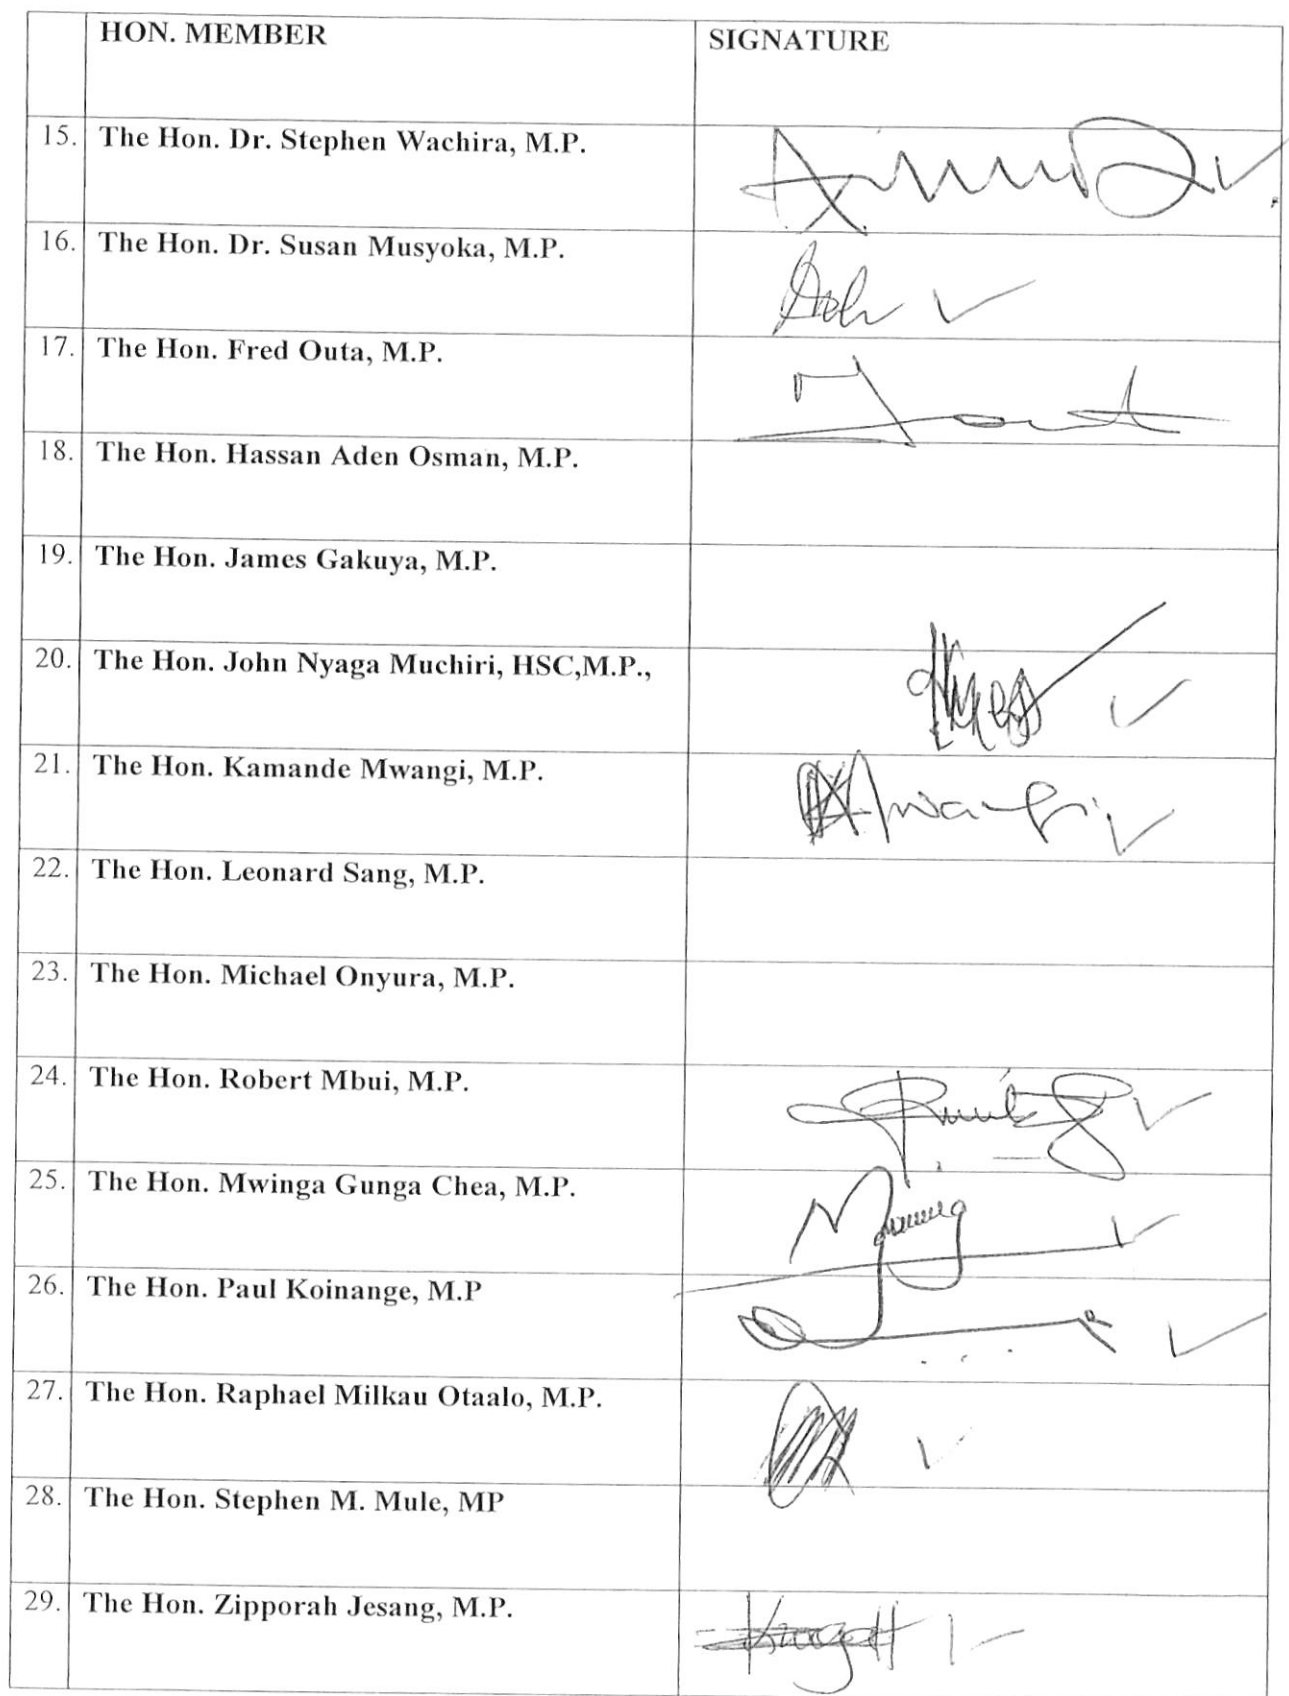 HON. MEMBER SIGNATURE
15. The Hon. Dr. Stephen Wachira, M.P.
16. The Hon. Dr. Susan Musyoka, M.P.
17. The Hon. Fred Outa, M.P.
18. The Hon. Hassan Aden Osman, M.P.
19. The Hon. James Gakuya, M.P.
20. The Hon. John Nyaga Muchiri, HSC,M.P.,
21. The Hon. Kamande Mwangi, M.P.
22. The Hon. Leonard Sang, M.P.
23. The Hon. Michael Onyura, M.P.
24. The Hon. Robert Mbui, M.P.
25. The Hon. Mwinga Gunga Chea, M.P.
26. The Hon. Paul Koinange, M.P
27. The Hon. Raphael Milkau Otaalo, M.P.
28. The Hon. Stephen M. Mule, MP
29. The Hon. Zipporah Jesang, M.P.